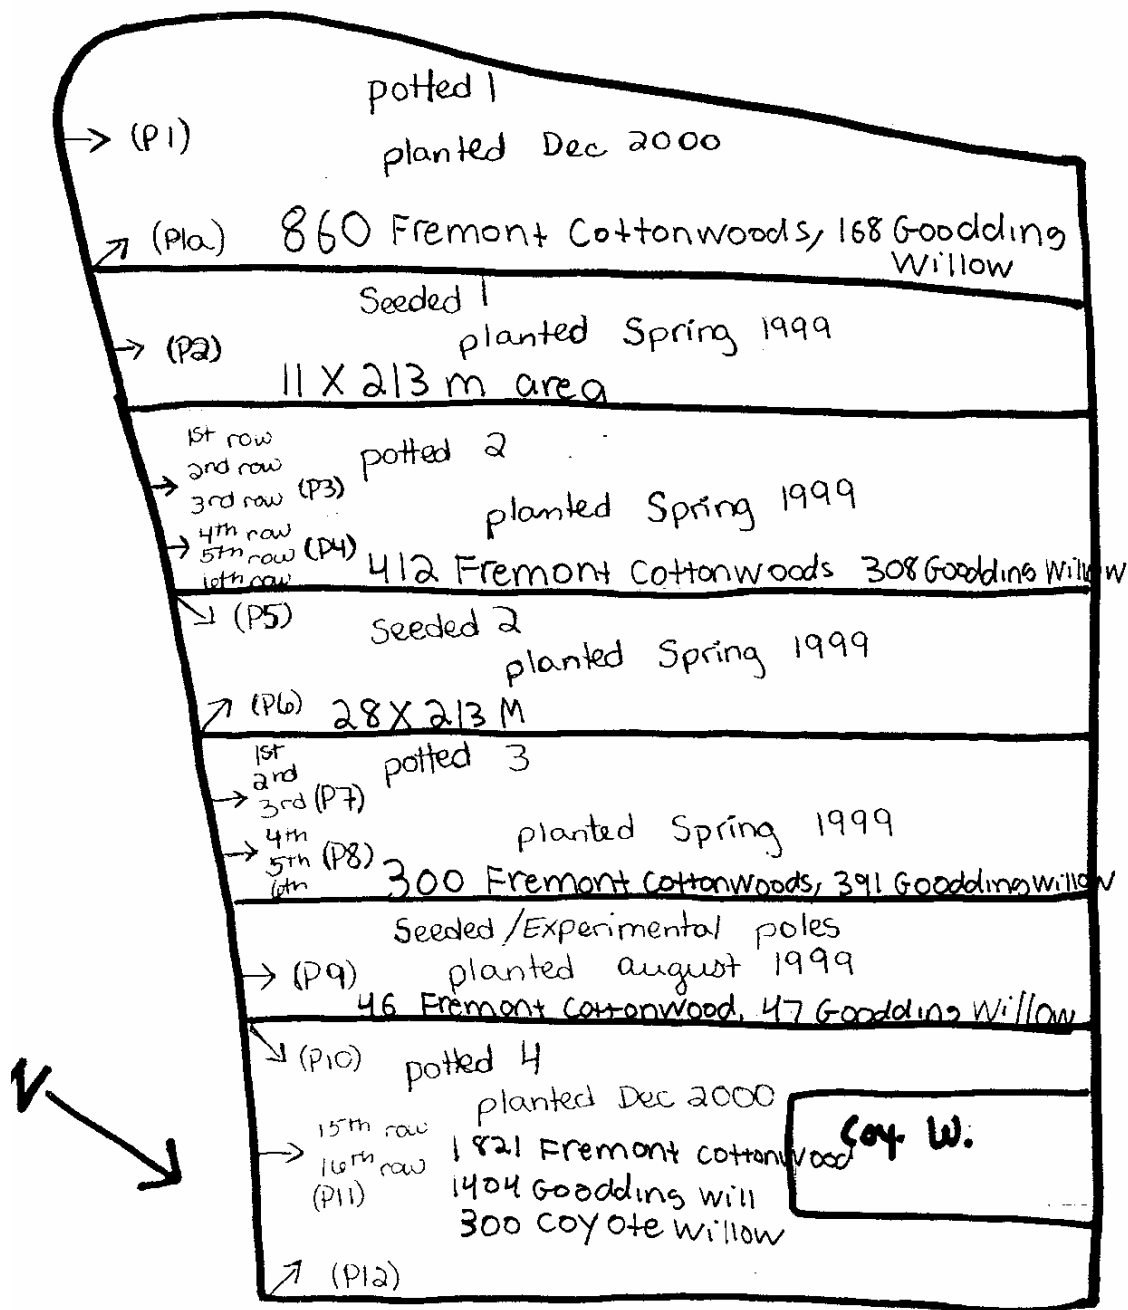 potted 1
(P1)
planted Dec 2000
(P1a) 860 Fremont Cottonwoods, 168 Goodding
Willow
Seeded 1
planted Spring 1999
(P2)
11 X 213 m area
1st row
potted 2
2nd row
3rd row (P3)
planted Spring 1999
4th row
5th row (P4)
6th row
412 Fremont Cottonwoods 308 Goodding Willow
(P5)
Seeded 2
planted Spring 1999
(P6) 28 X 213 M
1st
potted 3
2nd
3rd (P7)
planted Spring 1999
4th
5th (P8)
6th
300 Fremont Cottonwoods, 391 Goodding Willow
Seeded/Experimental poles
(P9) planted august 1999
46 Fremont Cottonwood, 47 Goodding Willow
(P10) potted 4
planted Dec 2000
N
15th row
16th row
(P11)
1821 Fremont Cottonwood
1404 Goodding Will
300 Coyote Willow
Coy. W.
(P12)